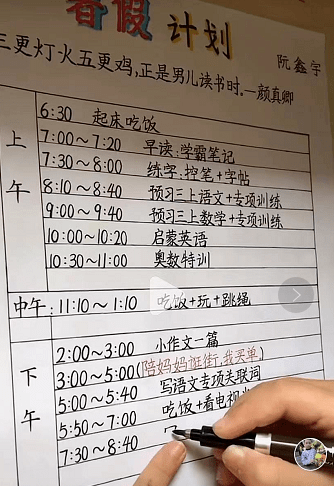 暑假计划
三更灯火五更鸡,正是男儿读书时.一颜真卿
阮鑫宇
上午
6:30 起床吃饭
7:00~7:20 早读:学霸笔记
7:30~8:00 练字:控笔+字帖
8:10~8:40 预习三上语文+专项训练
9:00~9:40 预习三上数学+专项训练
10:00~10:20 启蒙英语
10:30~11:00 奥数特训
中午:11:10~1:10 吃饭+玩+跳绳
下午
2:00~3:00 小作文一篇
3:00~5:00(陪妈妈逛街,我买单)
5:00~5:40 写语文专项关联词
5:50~7:00 吃饭+看电视
7:30~8:40